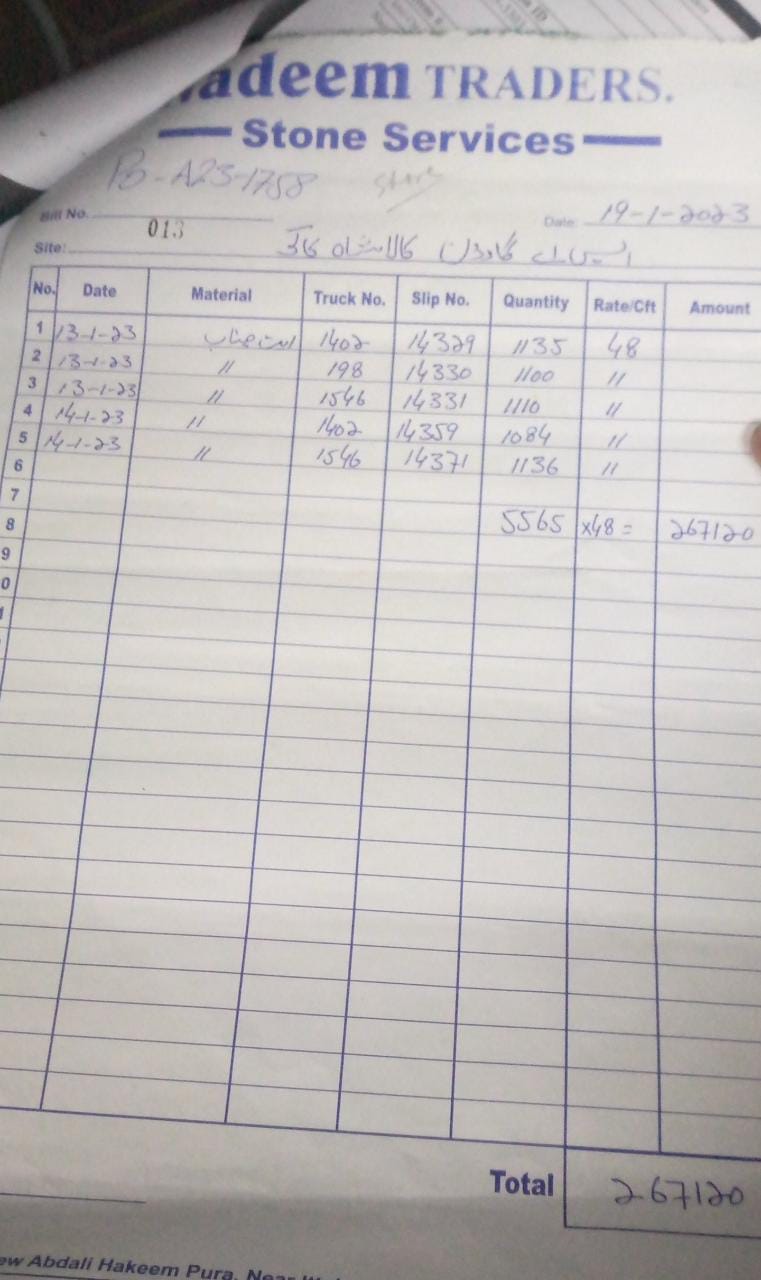 adeem TRADERS.
Stone Services
PO-A23-1758
Bill No. 013
Date: 19-1-2023
Site: کالا شاہ کاکو
No. Date Material Truck No. Slip No. Quantity Rate/Cft Amount
1 13-1-23 1402 14329 1135 48
2 13-1-23 " 198 14330 1100 "
3 13-1-23 " 1546 14331 1110 "
4 14-1-23 " 1402 14359 1084 "
5 14-1-23 " 1546 14371 1136 "
6
7
8 5565 x48 = 267120
9
0
Total 267120
ew Abdali Hakeem Pura, Near